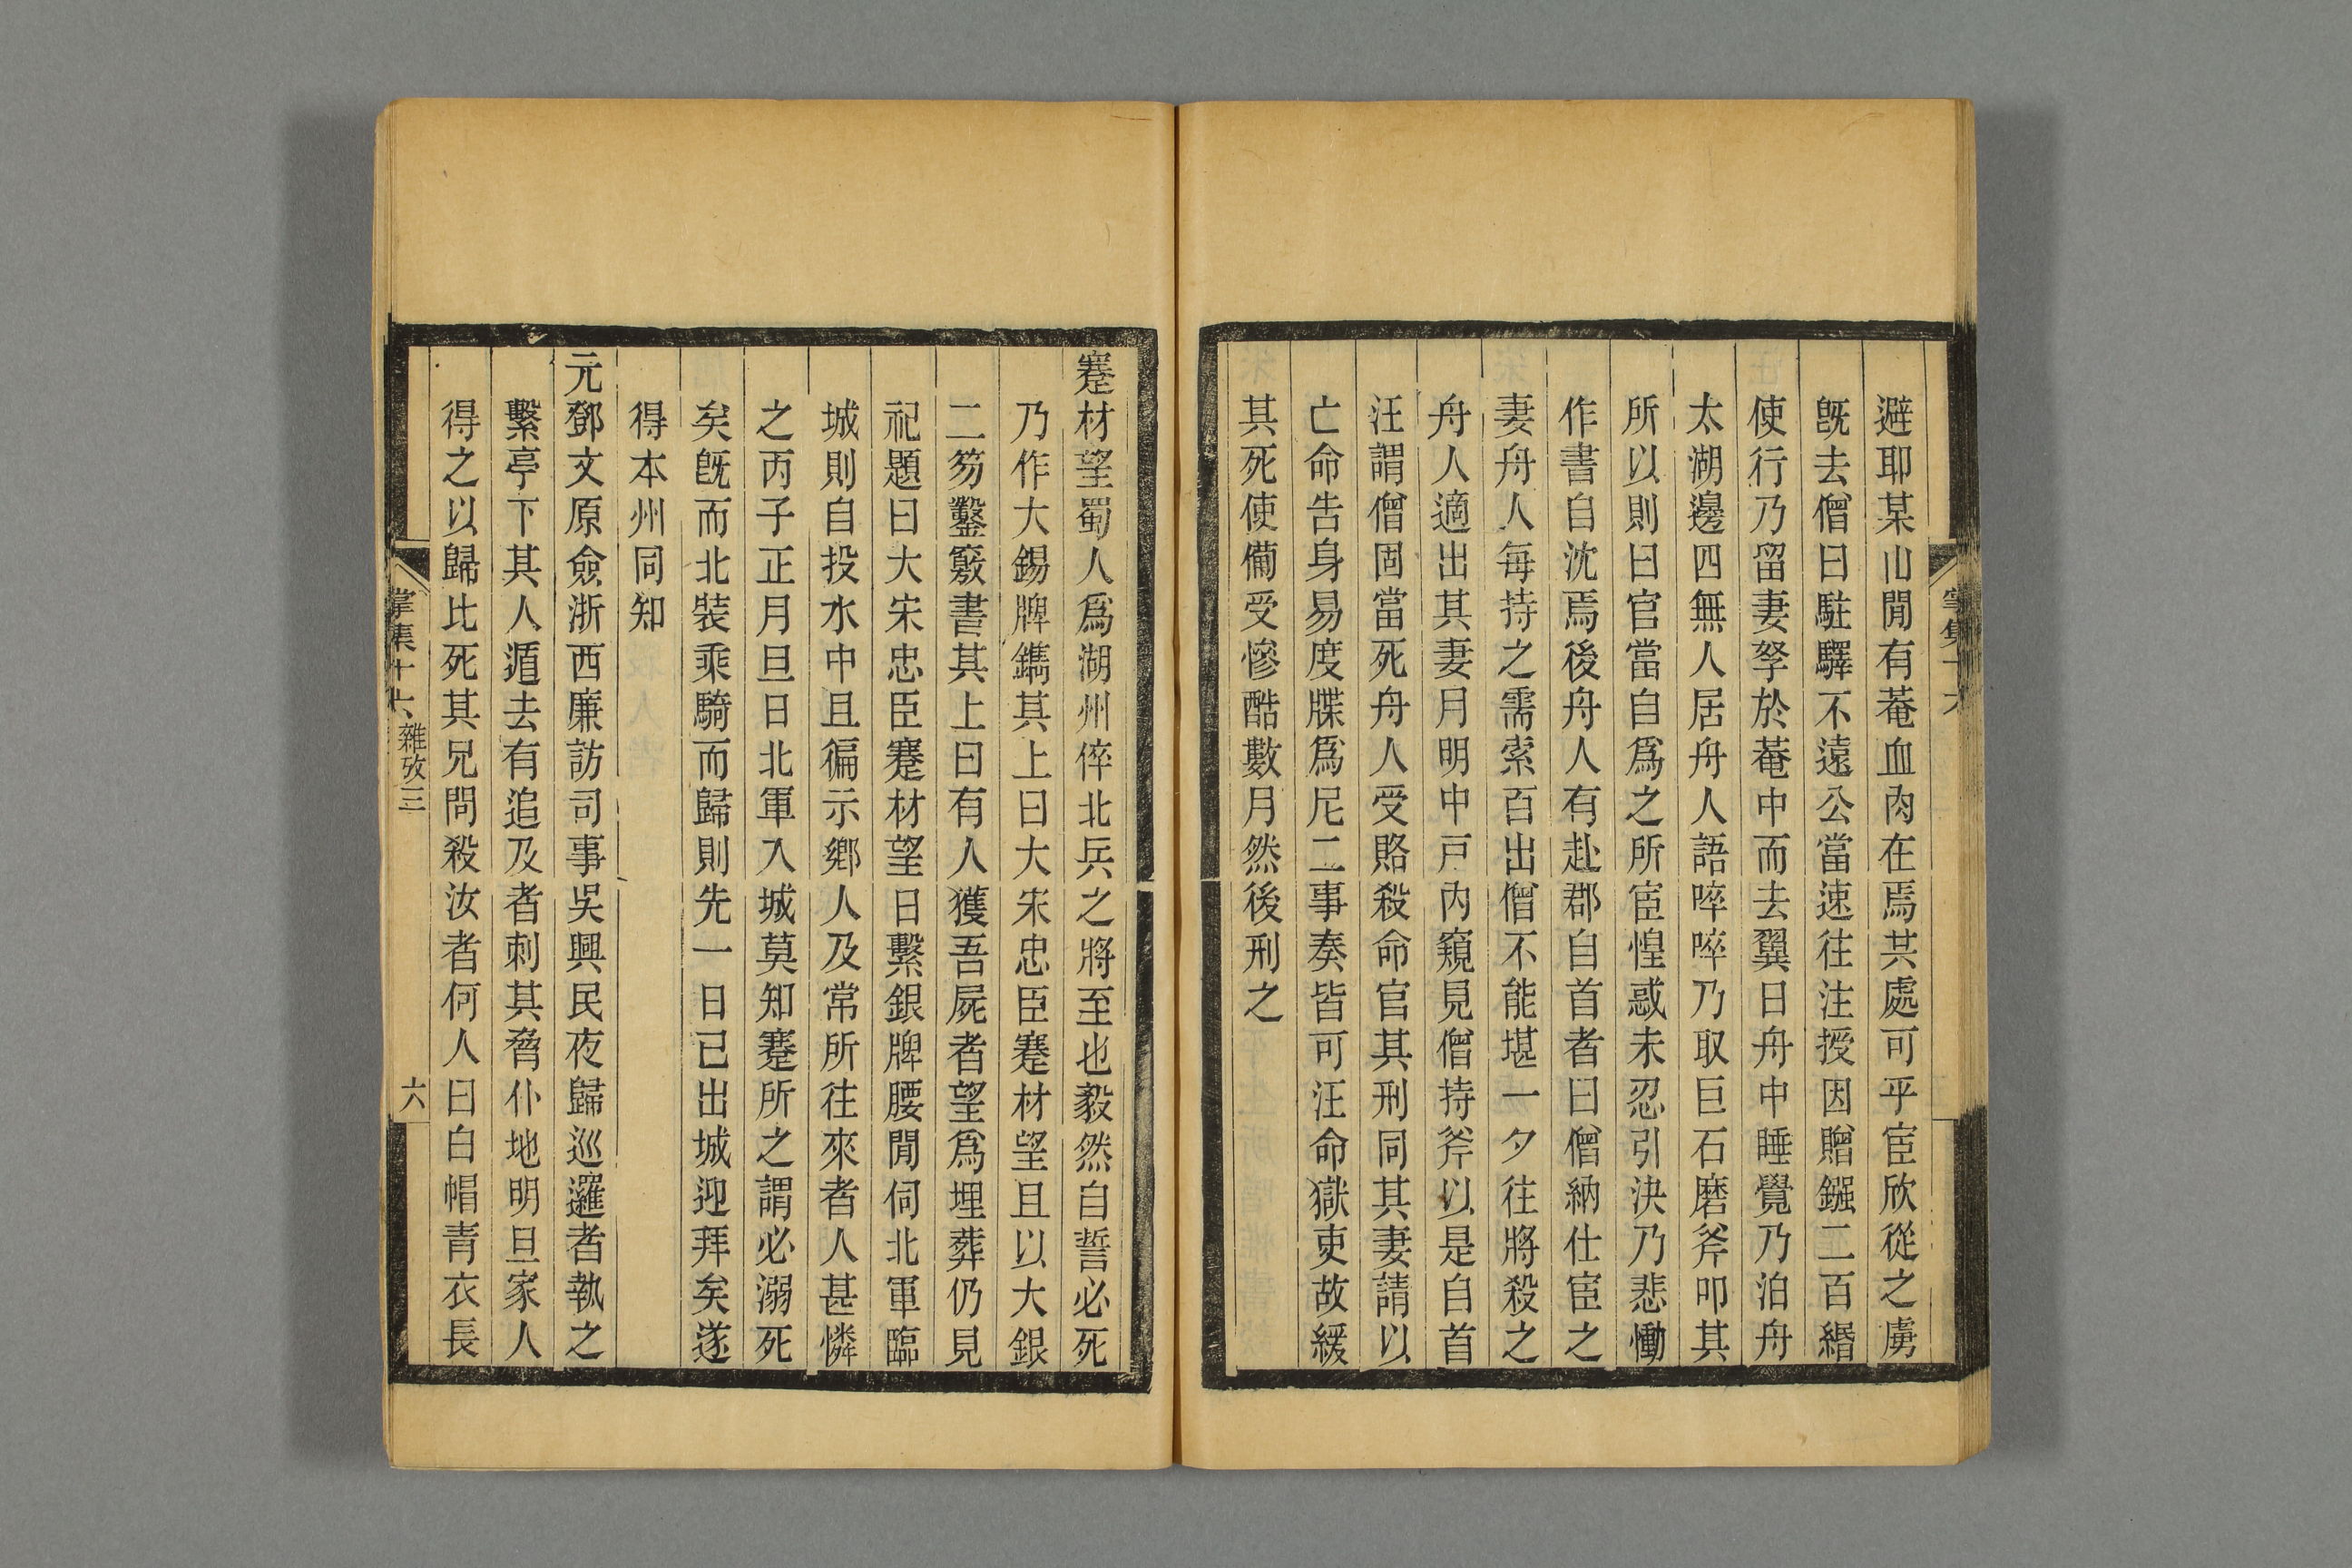 避耶某山閒有菴血肉在焉其處可乎宦欣從之虜
旣去僧曰駐驛不遠公當速往注授因贈鏹二百緡
使行乃留妻孥於菴中而去翼日舟中睡覺乃泊舟
太湖邊四無人居舟人語啐啐乃取巨石磨斧叩其
所以則曰官當自爲之所宦惶惑未忍引決乃悲慟
作書自沈焉後舟人有赴郡自首者曰僧納仕宦之
妻舟人每持之需索百出僧不能堪一夕往將殺之
舟人適出其妻月明中戸內窺見僧持斧以是自首
汪謂僧固當死舟人受賂殺命官其刑同其妻請以
亡命告身易度牒爲尼二事奏皆可汪命獄吏故緩
其死使備受慘酷數月然後刑之
蹇材望蜀人爲湖州倅北兵之將至也毅然自誓必死
乃作大錫牌鐫其上曰大宋忠臣蹇材望且以大銀
二笏鑿竅書其上曰有人獲吾屍者望爲埋葬仍見
祀題曰大宋忠臣蹇材望日繫銀牌腰閒伺北軍臨
城則自投水中且徧示鄉人及常所往來者人甚憐
之丙子正月旦日北軍入城莫知蹇所之謂必溺死
矣旣而北裝乘騎而歸則先一日已出城迎拜矣遂
得本州同知
元鄧文原僉浙西廉訪司事吳興民夜歸巡邏者執之
繫亭下其人遁去有追及者刺其脅仆地明旦家人
得之以歸比死其兄問殺汝者何人曰白帽青衣長
掌集十六 雜攷三 六